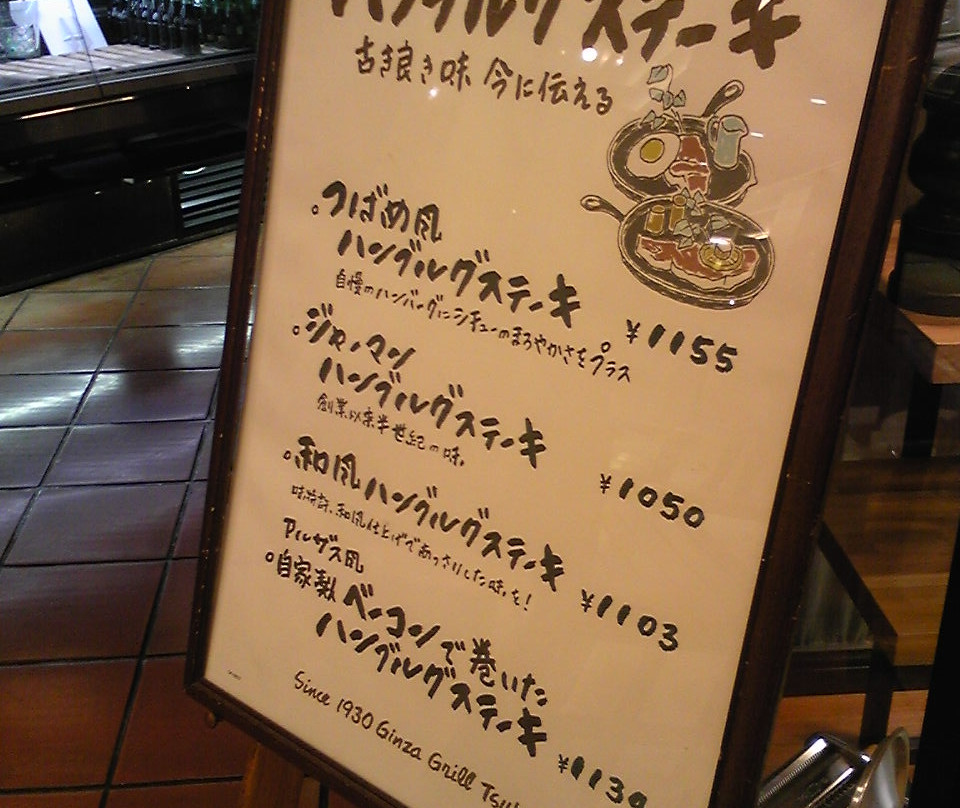 ハンブルグステーキ
古き良き味 今に伝える
つばめ風
ハンブルグステーキ
¥1155
自慢のハンバーグにシチューのまろやかさをプラス
ジャーマン
ハンブルグステーキ
¥1050
創業以来半世紀の味。
和風ハンブルグステーキ
¥1103
味特許、和風仕上げであっさりした味を!
アルザス風
自家製 ベーコンで巻いた
ハンブルグステーキ
¥1139
Since 1930 Ginza Grill